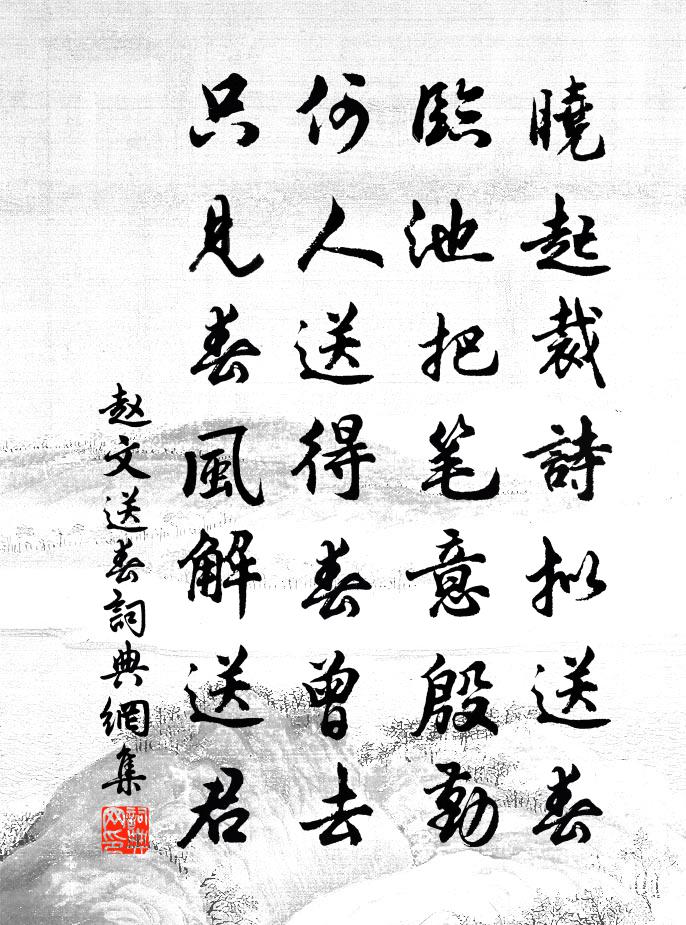 曉起裁詩拟送春
臨池把笔意殷勤
何人送得春曾去
只見春風解送君
赵文送春詞典網集